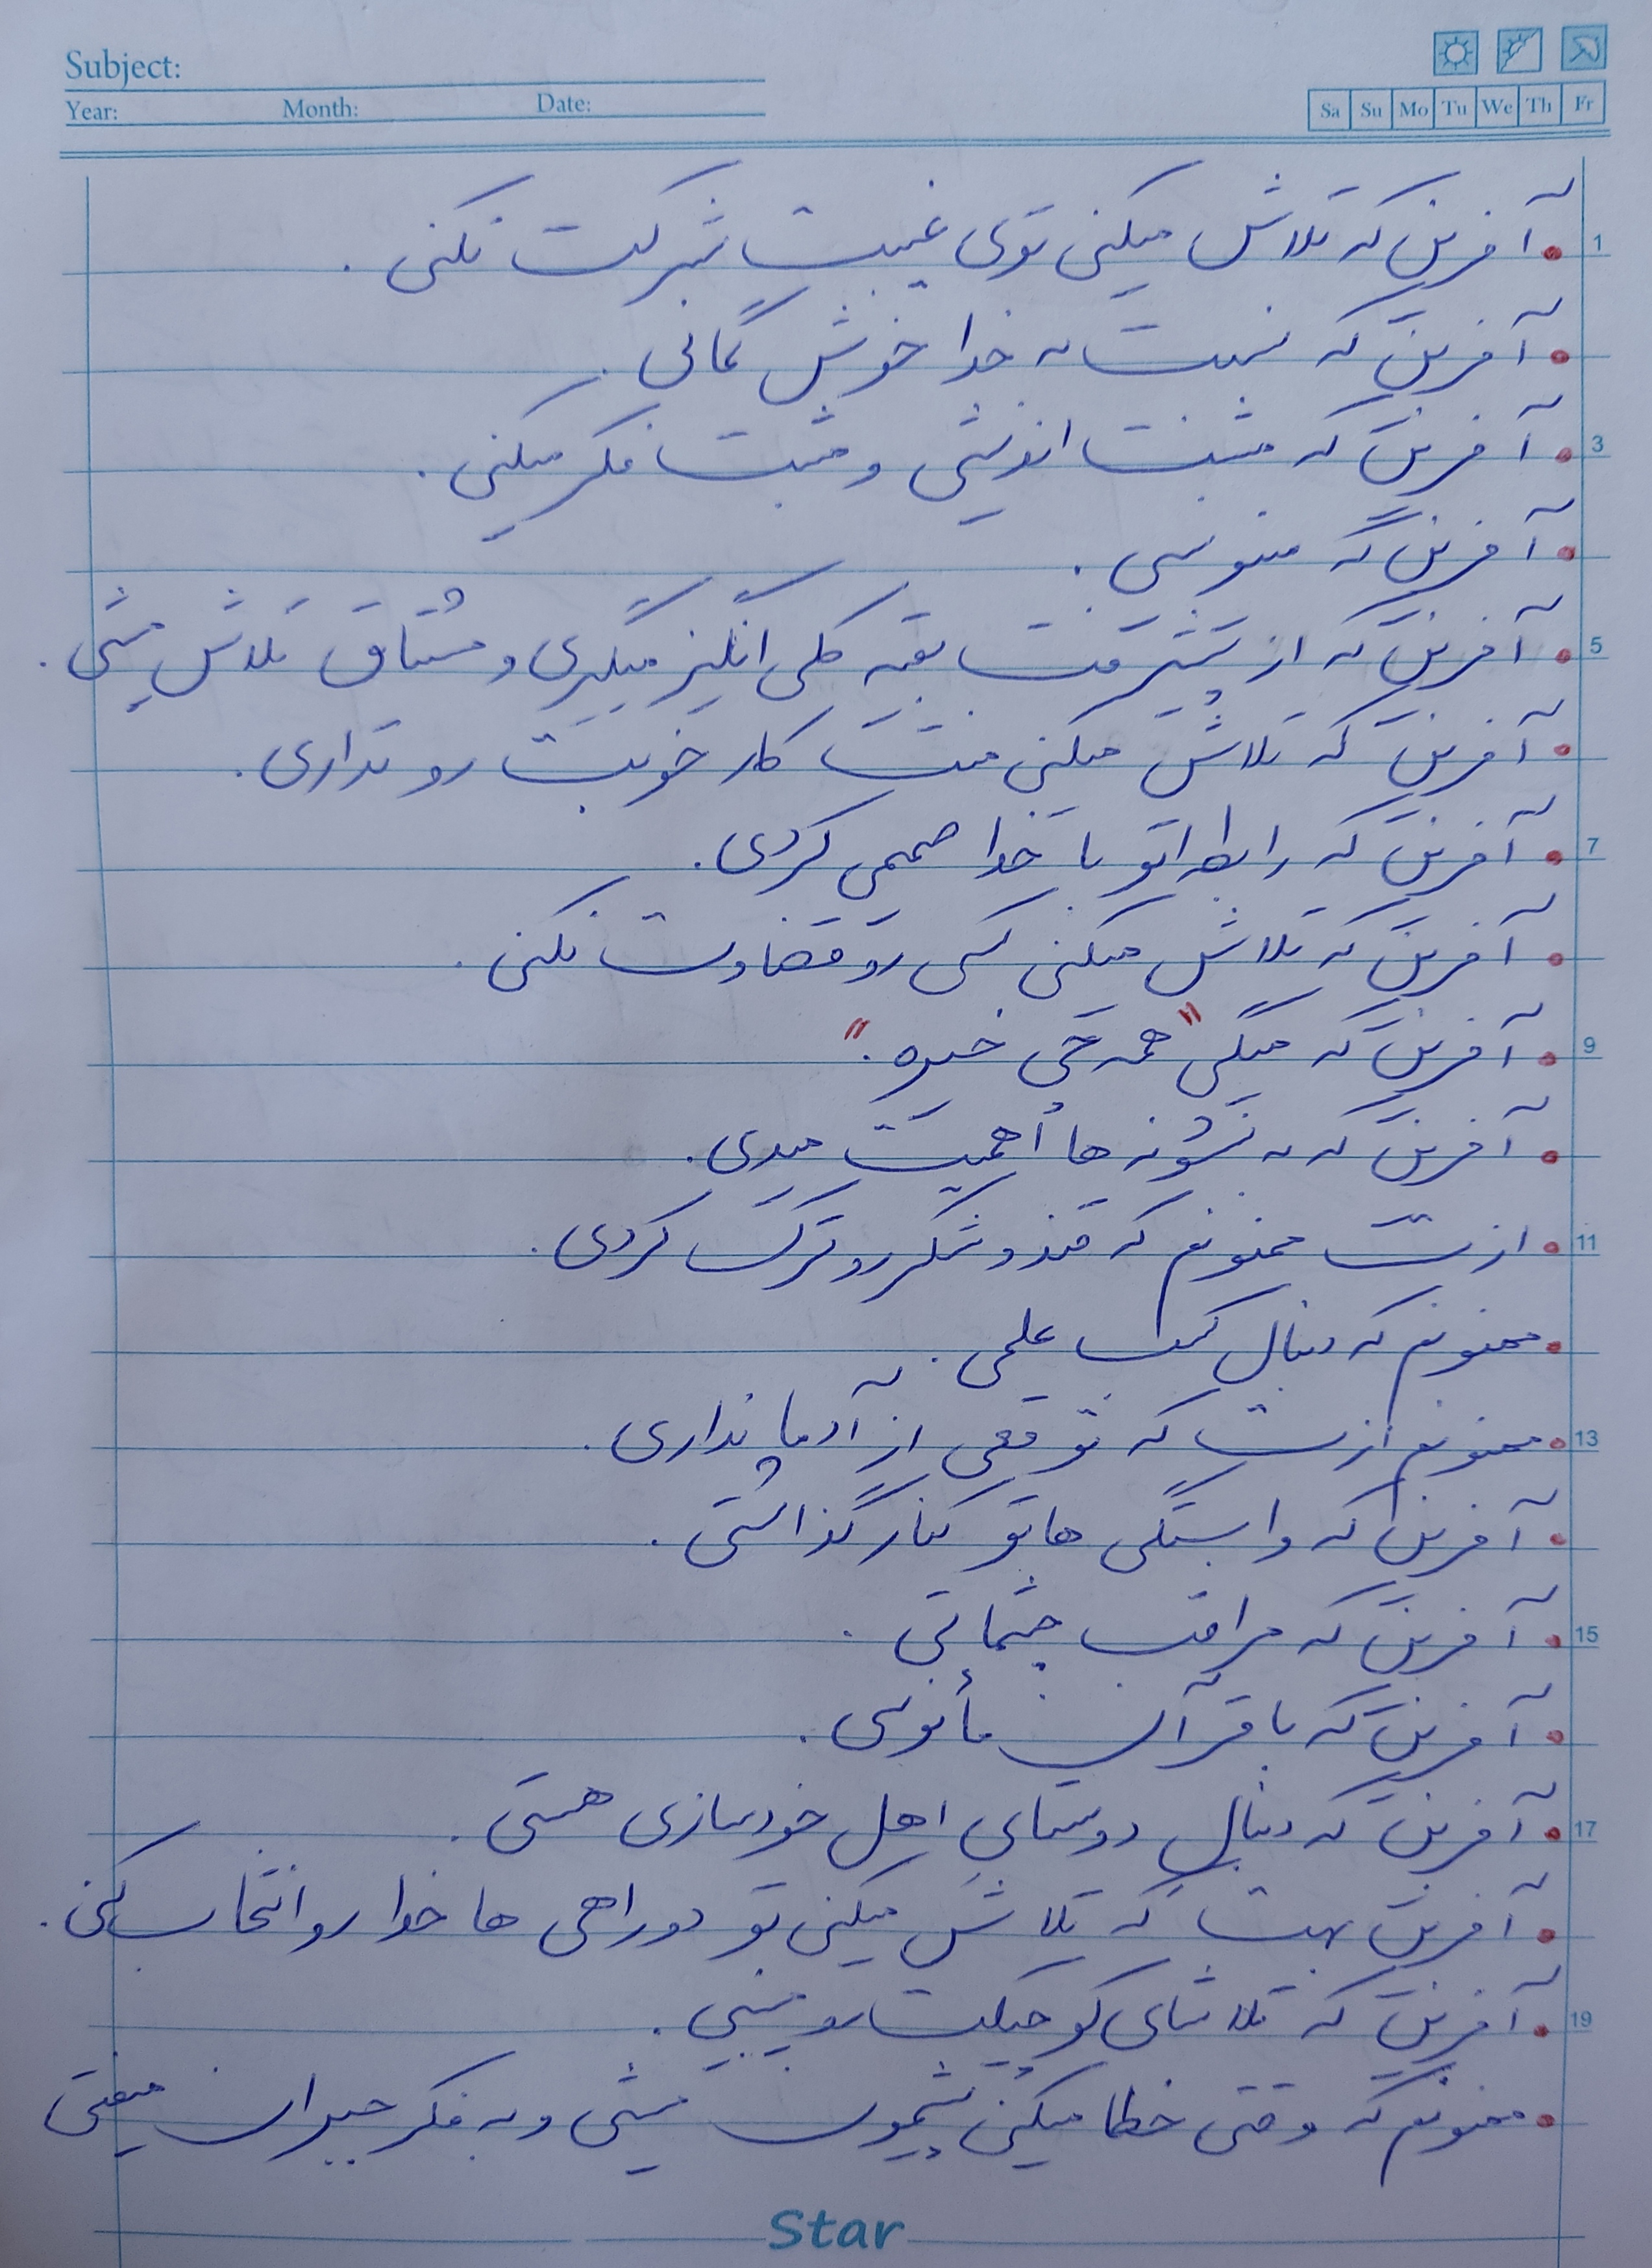 Subject:
Year: Month: Date:
Sa Su Mo Tu We Th Fr
1 • آفرین که تلاش میکنی توی غیبت شرکت نکنی.
• آفرین که نسبت به خدا خوش گمانی.
3 • آفرین که مثبت اندیشی و مثبت فکر میکنی.
• آفرین که مینویسی.
5 • آفرین که از پیشرفت بقیه کلی انگیزه میگیری و مشتاق تلاش میشی.
• آفرین که تلاش میکنی منت کار خوبت رو نذاری.
7 • آفرین که رابطه اتو با خدا صمیمی کردی.
• آفرین که تلاش میکنی کسی رو قضاوت نکنی.
9 • آفرین که میگی "همه چی خیره."
• آفرین که به نشونه ها اهمیت میدی.
11 • ازت ممنونم که قند و شکر رو ترک کردی.
• ممنونم که دنبال کسب علمی.
13 • ممنونم ازت که توقعی از آدما نداری.
• آفرین که وابستگی هاتو کنار گذاشتی.
15 • آفرین که مراقب چشماتی.
• آفرین که با قرآن مأنوسی.
17 • آفرین که دنبال دوستای اهل خودسازی هستی.
• آفرین بهت که تلاش میکنی تو دوراهی ها خدا رو انتخاب کنی.
19 • آفرین که تلاشای کوچیکت رو میبینی.
• ممنونم که وقتی خطا میکنی پشیمون میشی و به فکر جبران میفتی
Star